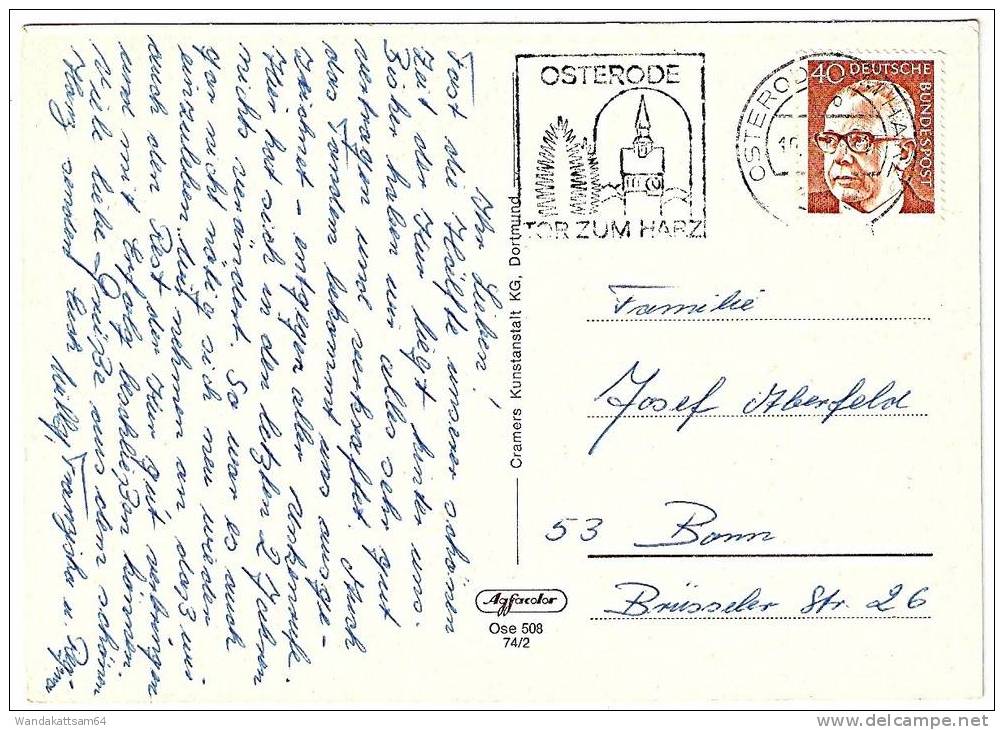 Ihr Lieben!
Fast die Hälfte unserer schönen
Zeit der Kur liegt hinter uns.
Bisher haben wir alles sehr gut
vertragen und verkraftet. Auch
das Wasser bekommt uns ausge-
zeichnet - entgegen aller Auskünfte.
Hier hat sich in den letzten 2 Jahren
nichts verändert. So war es auch
gar nicht nötig sich neu werden
einzuleben. Wir nehmen an daß wir
auch den Rest der Kur gut verbringen
und mit Erfolg beschließen können.
Viele liebe Grüße aus dem schönen
Harz senden Euch Willy, Franziska u.
OSTERODE
TOR ZUM HARZ
OSTERODE AM HARZ
40 DEUTSCHE
BUNDESPOST
Cramers Kunstanstalt KG, Dortmund
Familie
Josef Aberfeld
53 Bonn
Brüsseler Str. 26
Agfacolor
Ose 508
74/2
Wandakattsam64
www.delcampe.net